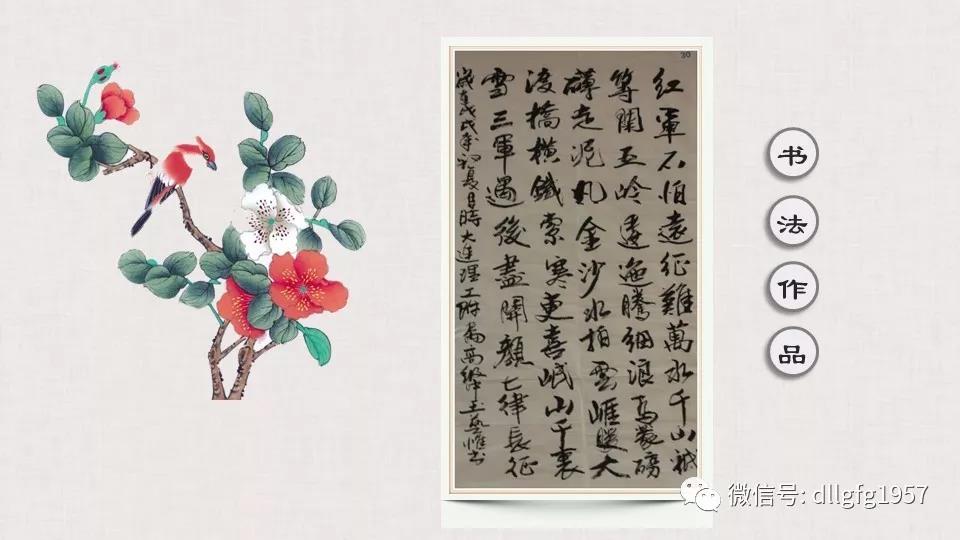 30
红軍不怕遠征難萬水千山祇
等閑五岭逶迤騰细浪烏蒙磅
礴走泥丸金沙水拍雲崖暖大
渡橋橫鐵索寒更喜岷山千裏
雪三軍過後盡開顔七律長征
戊戌年初夏月時大連理工附高
书
法
作
品
微信号: dllgfg1957